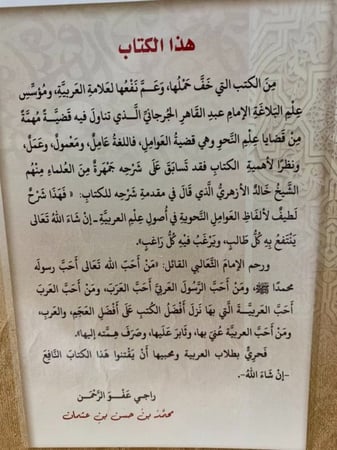 هذا الكتاب
مِنَ الكتب التي خَفَّ حَمْلُها، وَعَـمَّ نَفْعُها لعلامةِ العربيَّةِ، ومُؤسِّسِ
عِلْمِ البَلاغَةِ الإمام عبدِ القاهرِ الجُرجانيِّ الَّـذي تناولَ فيه قَضيَّـةً مُهمَّةً
مِن قضايا عِلْمِ النَّحوِ وهي قضيةُ العوامِلِ، فاللغةُ عامِلٌ، ومَعْمولٌ، وعَمَلٌ،
ونظرًا لأهميةِ الكتابِ فقد تَسابَقَ عَلَى شَرْحِهِ جَمْهَرَةٌ مِنَ العلماءِ مِنْهُم
الشَّيخُ خَالدٌ الأزهريُّ الَّذي قَالَ في مقدمةِ شَرْحِه للكتابِ: «فَهَذَا شَرْحٌ
لَطيفٌ لألفاظِ العَوامِلِ النَّحويةِ في أصولِ عِلْمِ العربيةِ -إنْ شَاءَ اللهُ تَعَالى
يَنْتَفعُ بِهِ كُلُّ طالبٍ، ويَرْغَبُ فيْهِ كُلُّ رَاغبٍ».
ورحم الإمامَ الثَّعالبي القائل: «مَنْ أَحبَّ الله تَعَالى أَحَبَّ رسولَه
محمدًا ﷺ، ومَنْ أَحبَّ الرَّسولَ العَربيَّ أَحبَّ العَرَبَ، ومَنْ أَحبَّ العَربَ
أَحَبَّ العَرَبيَّـةَ الَّتي بِهَا نَزَلَ أَفْضَلُ الكُتبِ عَلَى أَفْضَلِ العَجَمِ، والعَربِ،
ومَنْ أَحبَّ العربيَّةَ عُنِيَ بها، وثَابَرَ عَلَيها، وصَرَفَ هِمَّته إليها».
فَحَرِيٌّ بطلاب العربية ومحبيها أَنْ يَقْتَنوا هَذَا الكتابَ النَّافِعَ
-إنْ شَاءَ اللهُ-.
راجي عَفْوِ الرَّحْمَنِ
محمَّد بن حسن بن عثمان